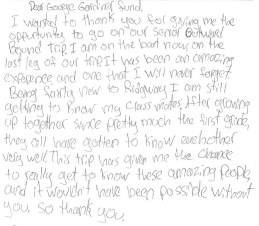 Dear George Gardner fund.
I wanted to thank you for giving me the
opportunity to go on our senior Outward
Bound trip. I am on the boat now on the
last leg of our trip. It has been an amazing
experience and one that I will never forget.
Being fairly new to Ridgway I am still
getting to know my class mates. After growing
up together since pretty much the first grade,
they all have gotten to know eachother
very well. This trip has given me the chance
to really get to know these amazing people,
and it wouldn't have been possible without
you, so thank you.